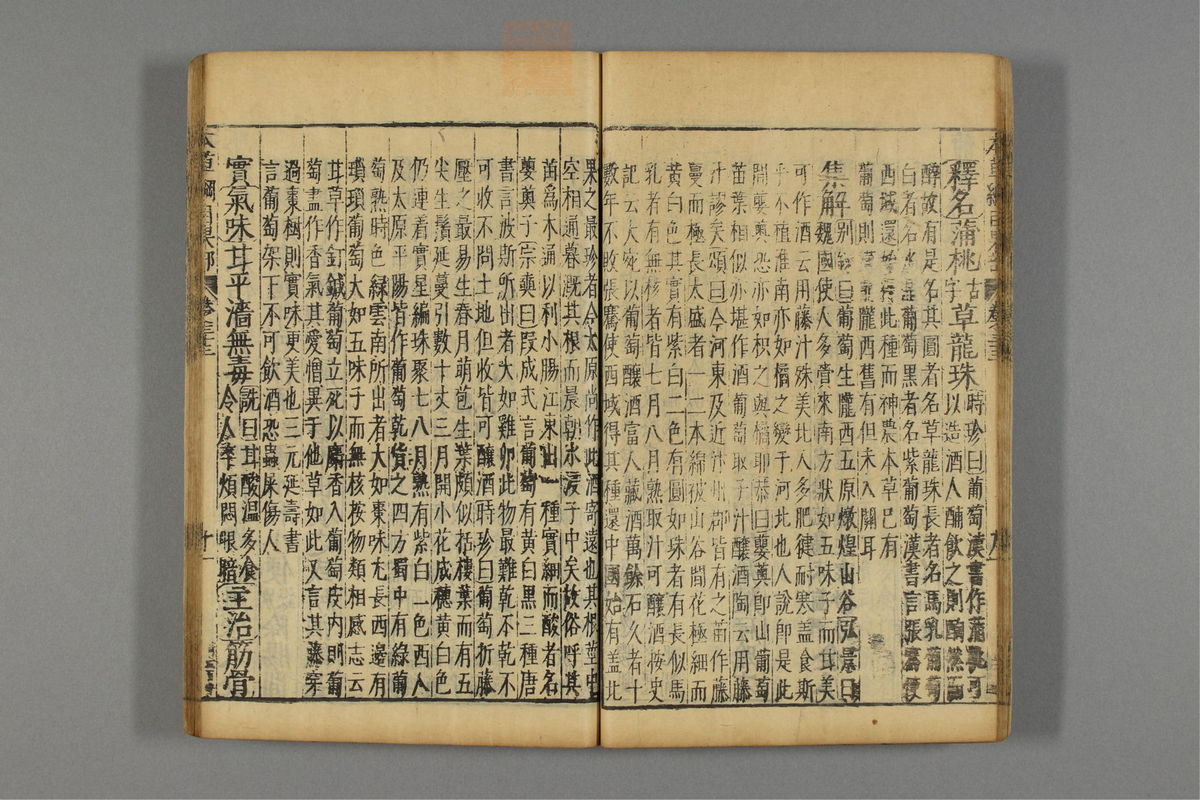 本草綱目果部 卷三十三
釋名蒲桃古字草龍珠時珍曰葡萄漢書作蒲桃可
以造酒人酺飲之則醄然而
醉故有是名其圓者名草龍珠長者名馬乳葡萄
白者名水晶葡萄黑者名紫葡萄漢書言張騫使
西域還始得此種而神農本草已有
葡萄則漢前隴西舊有但未入關耳
集解別錄曰葡萄生隴西五原燉煌山谷弘景曰
魏國使人多齎來南方狀如五味子而甘美
可作酒云用藤汁殊美北人多肥健耐寒蓋食斯
乎不植淮南亦如橘之變于河北也人說即是此
間蘡薁恐亦如枳之與橘耶恭曰蘡薁即山葡萄
苗葉相似亦堪作酒葡萄取子汁釀酒陶云用藤
汁謬矣頌曰今河東及近汴州郡皆有之苗作藤
蔓而極長太盛者一二本綿被山谷間花極細而
黃白色其實有紫白二色有圓如珠者有長似馬
乳者有無核者皆七月八月熟取汁可釀酒按史
記云大宛以葡萄釀酒富人藏酒萬餘石久者十
數年不敗張騫使西域得其種還中國始有蓋北
果之最珍者今太原尚作此酒寄遠也其根莖中
空相通暮溉其根而晨朝水浸子中矣故俗呼其
苗為木通以利小腸江東出一種實細而酸者名
蘡薁子宗奭曰段成式言葡萄有黃白黑三種唐
書言波斯所出者大如雞卵此物最難乾不乾不
可收不問土地但收皆可釀酒時珍曰葡萄折藤
壓之最易生春月萌苞生葉頗似栝樓葉而有五
尖生鬚延蔓引數十丈三月開小花成穗黃白色
仍連着實星編珠聚七八月熟有紫白二色西人
及太原平陽皆作葡萄乾貨之四方蜀中有綠葡
萄熟時色綠雲南所出者大如棗味尤長西邊有
瑣瑣葡萄大如五味子而無核按物類相感志云
甘草作釘鍼葡萄立死以麝香入葡萄皮內則葡
萄盡作香氣其愛憎異于他草如此又言其藤穿
過棗樹則實味更美也三元延壽書
言葡萄架下不可飲酒恐蟲屎傷人
實氣味甘平濇無毒詵曰甘酸溫多食
令人卒煩悶眼暗主治筋骨
本草綱目果部 卷三十三 十一